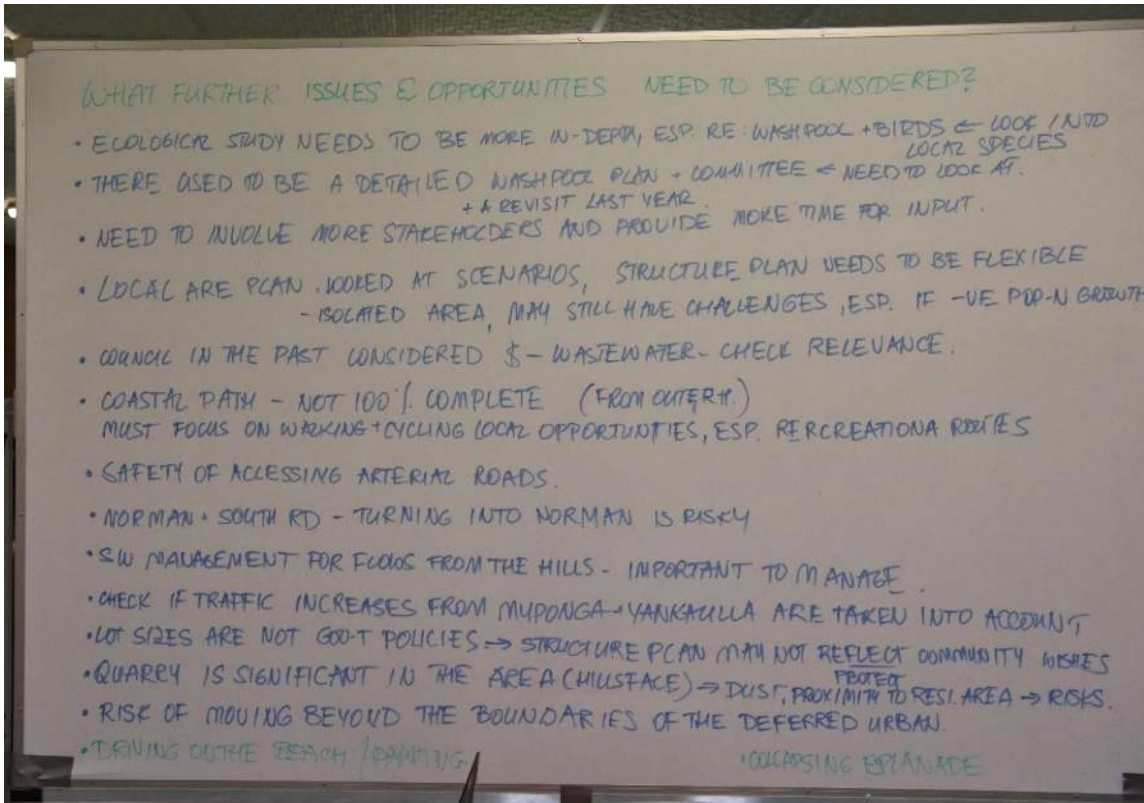 WHAT FURTHER ISSUES & OPPORTUNITIES NEED TO BE CONSIDERED?
• ECOLOGICAL STUDY NEEDS TO BE MORE IN-DEPTH, ESP. RE: WASHPOOL + BIRDS ← LOOK INTO
LOCAL SPECIES
• THERE USED TO BE A DETAILED WASHPOOL PLAN + COMMITTEE ← NEED TO LOOK AT.
+ A REVISIT LAST YEAR.
• NEED TO INVOLVE MORE STAKEHOLDERS AND PROVIDE MORE TIME FOR INPUT.
• LOCAL ARE PLAN. LOOKED AT SCENARIOS, STRUCTURE PLAN NEEDS TO BE FLEXIBLE
- ISOLATED AREA, MAY STILL HAVE CHALLENGES, ESP. IF -VE POP-N GROWTH
• COUNCIL IN THE PAST CONSIDERED $ - WASTEWATER - CHECK RELEVANCE.
• COASTAL PATH - NOT 100% COMPLETE (FROM OUTER H.)
MUST FOCUS ON WALKING + CYCLING LOCAL OPPORTUNTIES, ESP. RERCREATIONA ROUTES
• SAFETY OF ACCESSING ARTERIAL ROADS.
• NORMAN + SOUTH RD - TURNING INTO NORMAN IS RISKY
• SW MANAGEMENT FOR FLOWS FROM THE HILLS - IMPORTANT TO MANAGE.
• CHECK IF TRAFFIC INCREASES FROM MYPONGA + YANKALILLA ARE TAKEN INTO ACCOUNT
• LOT SIZES ARE NOT GOV-T POLICIES ⇒ STRUCTURE PLAN MAY NOT REFLECT COMMUNITY WISHES
PROTECT
• QUARRY IS SIGNIFICANT IN THE AREA (HILLSFACE) ⇒ DUST, PROXIMITY TO RESI. AREA → RISKS.
• RISK OF MOVING BEYOND THE BOUNDARIES OF THE DEFERRED URBAN.
• DRIVING ON THE BEACH / CAMPING
• COLLAPSING ESPLANADE